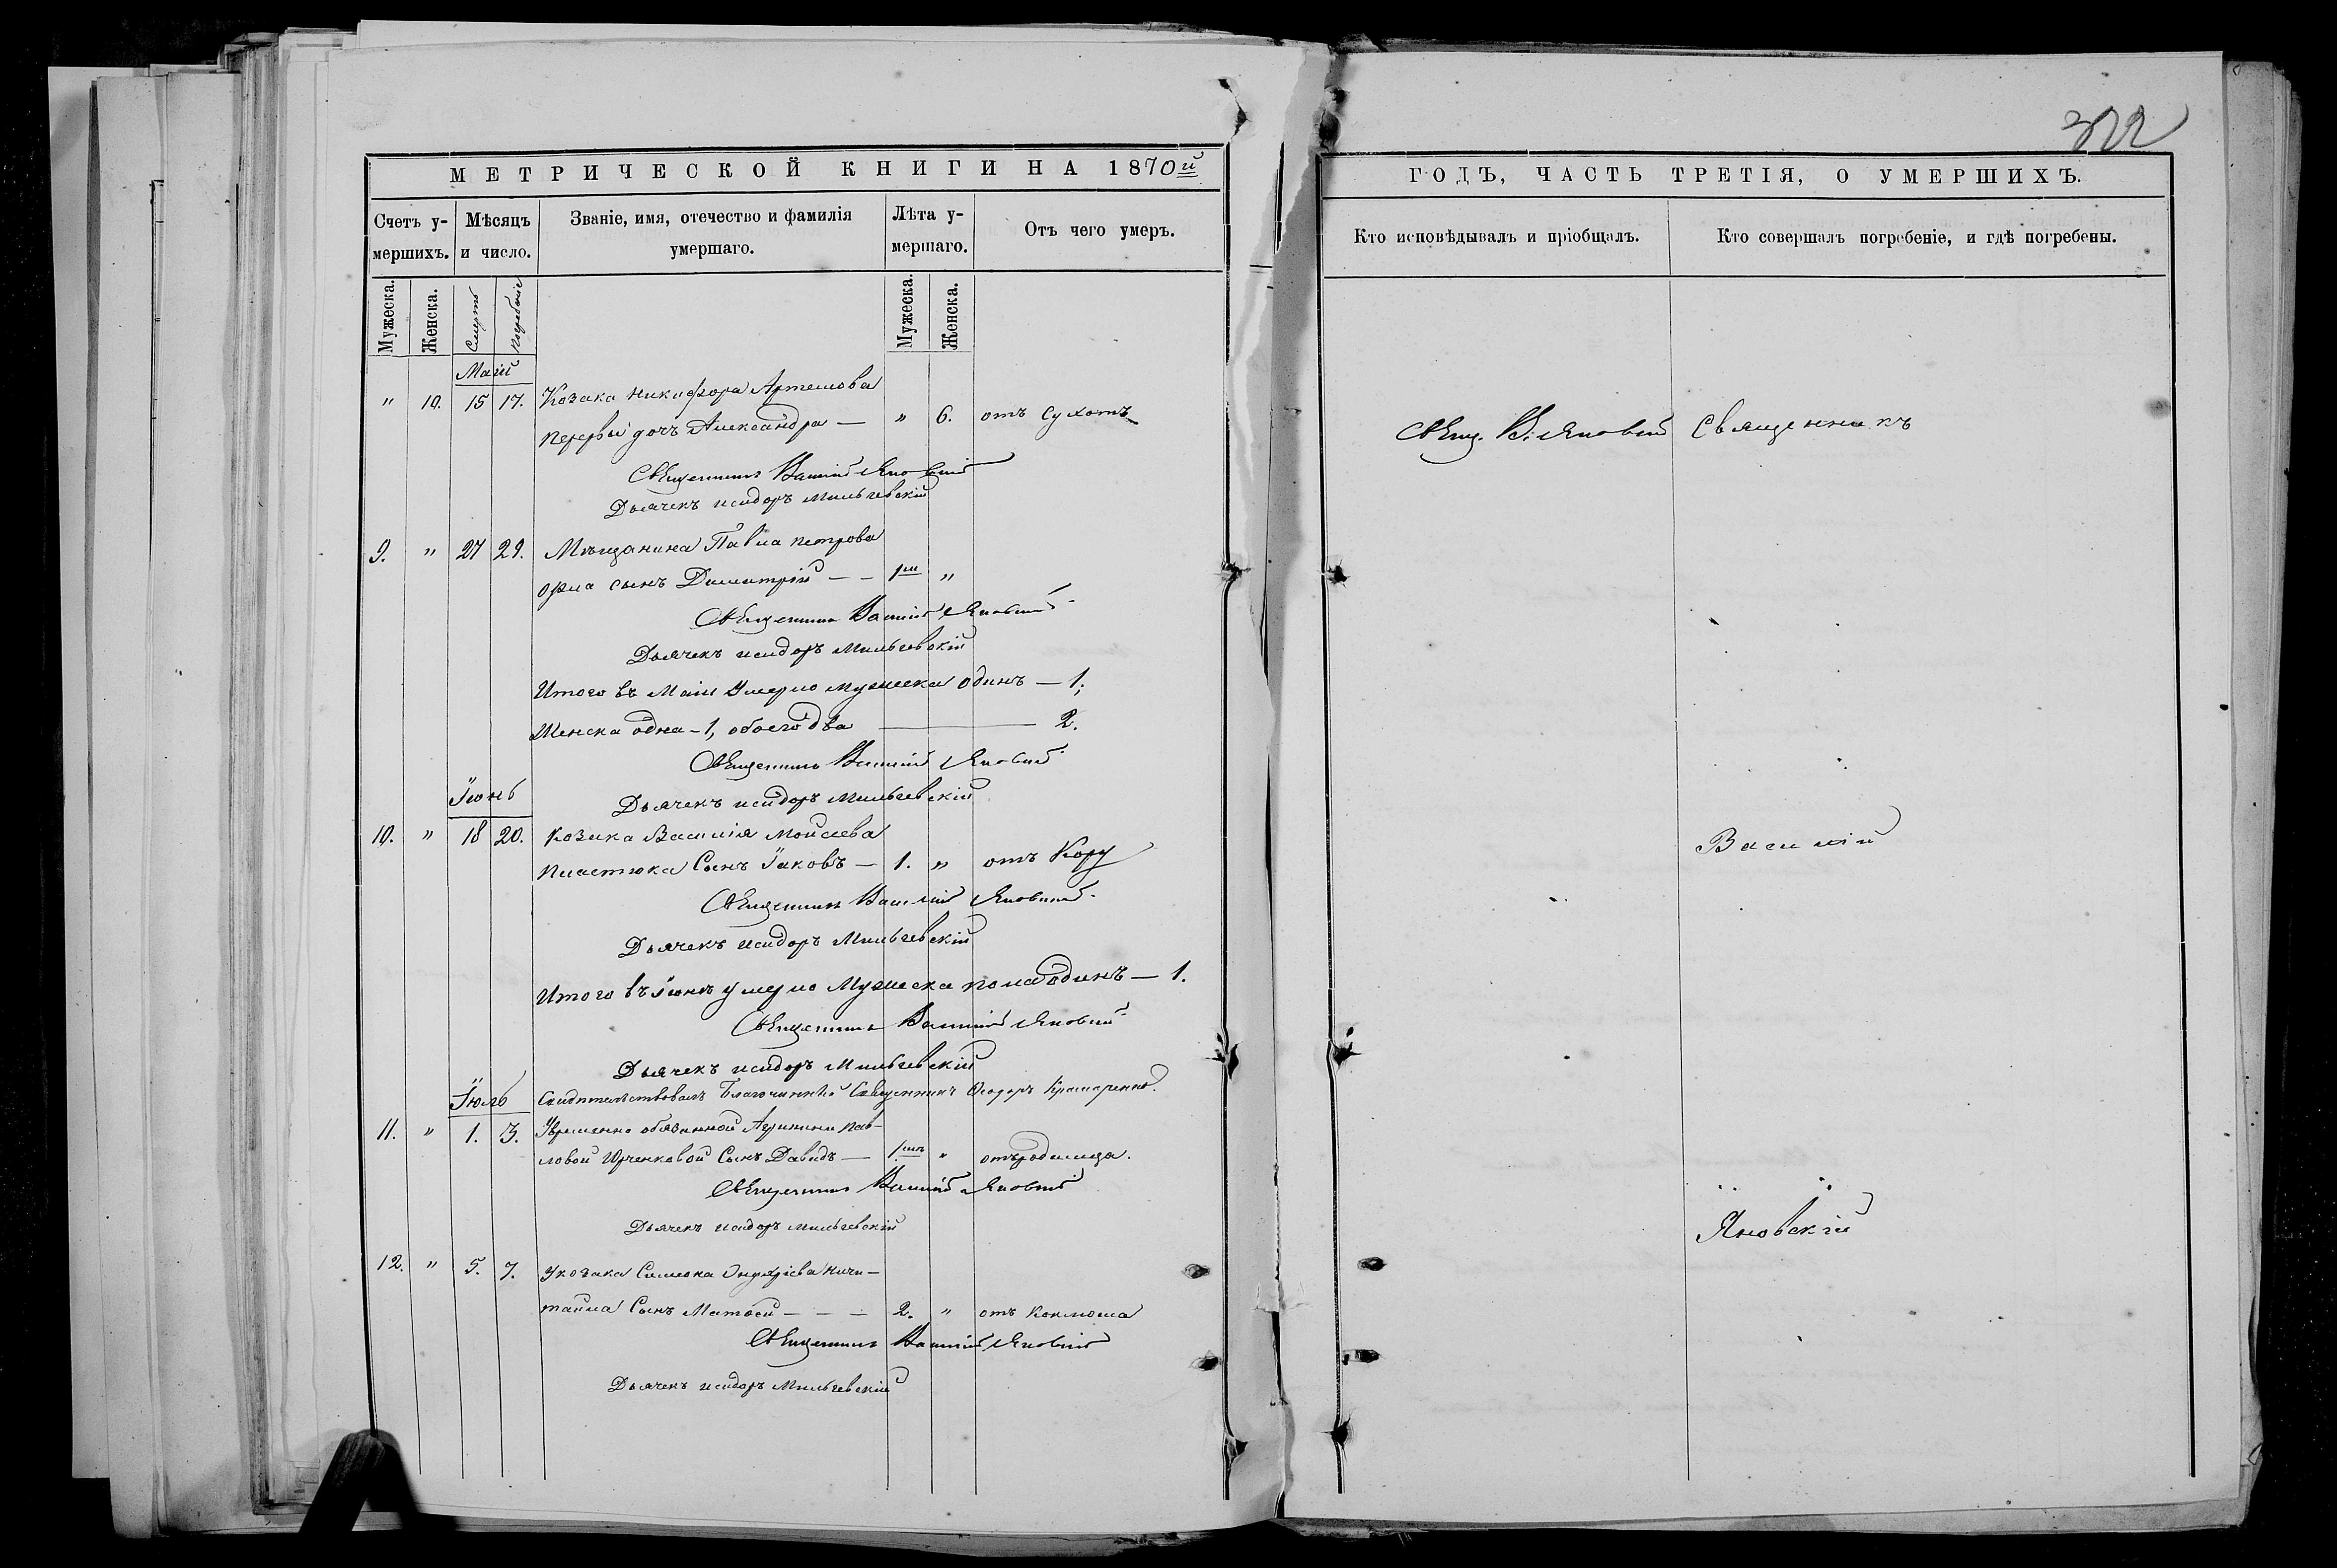 МЕТРИЧЕСКОЙ КНИГИ НА 1870й
Счетъ у-
мершихъ.
Мѣсяцъ
и число.
Званіе, имя, отечество и фамилія
умершаго.
Лѣта у-
мершаго.
Отъ чего умеръ.
Мужеска.
Женска.
Смерти
Погребенія
Мужеска.
Женска.
Маій
" 10. 15 17. Козака Никифора Артемова
Перервы дочъ Александра — " 6. отъ Сухотъ
Священникъ Василій Яновскій
Дьячекъ Исидоръ Мильчевскій
9. " 27 29. Мѣщанина Павла Петрова
сынъ Димитрій — — 1 "
Священникъ Василій Яновскій
Дьячекъ Исидоръ Мильчевскій
Итого въ Маіи умерло мужеска одинъ — 1;
Женска одна - 1, обоего два — 2.
Священникъ Василій Яновскій
Іюнь
Дьячекъ Исидоръ Мильчевскій
10. " 18 20. Козака Василія Мойсева
Пластюка Сынъ Іаковъ — 1. " отъ Кору
Священникъ Василій Яновскій
Дьячекъ Исидоръ Мильчевскій
Итого въ Іюнѣ умерло Мужеска пола одинъ — 1.
Священникъ Василій Яновскій
Дьячекъ Исидоръ Мильчевскій
Іюль
Свидѣтельствовалъ Благочинный Священникъ Ѳеодоръ Крамаренко.
11. " 1. 3. Увременно обязанной Агрипины Пав-
ловой Юрченковой Сынъ Давидъ — 1 " отъ родимца.
Священникъ Василій Яновскій
Дьячекъ Исидоръ Мильчевскій
12. " 5. 7. Укозака Симеона Ончи-
Сынъ Матѳей — — — 2. " отъ Коклюша
Священникъ Василій Яновскій
Дьячекъ Исидоръ Мильчевскій
322
ГОДЪ, ЧАСТЬ ТРЕТІЯ, О УМЕРШИХЪ.
Кто исповѣдывалъ и пріобщалъ.
Кто совершалъ погребеніе, и гдѣ погребены.
Свящ. В. Яновскій
Священникъ
Василій
Яновскій